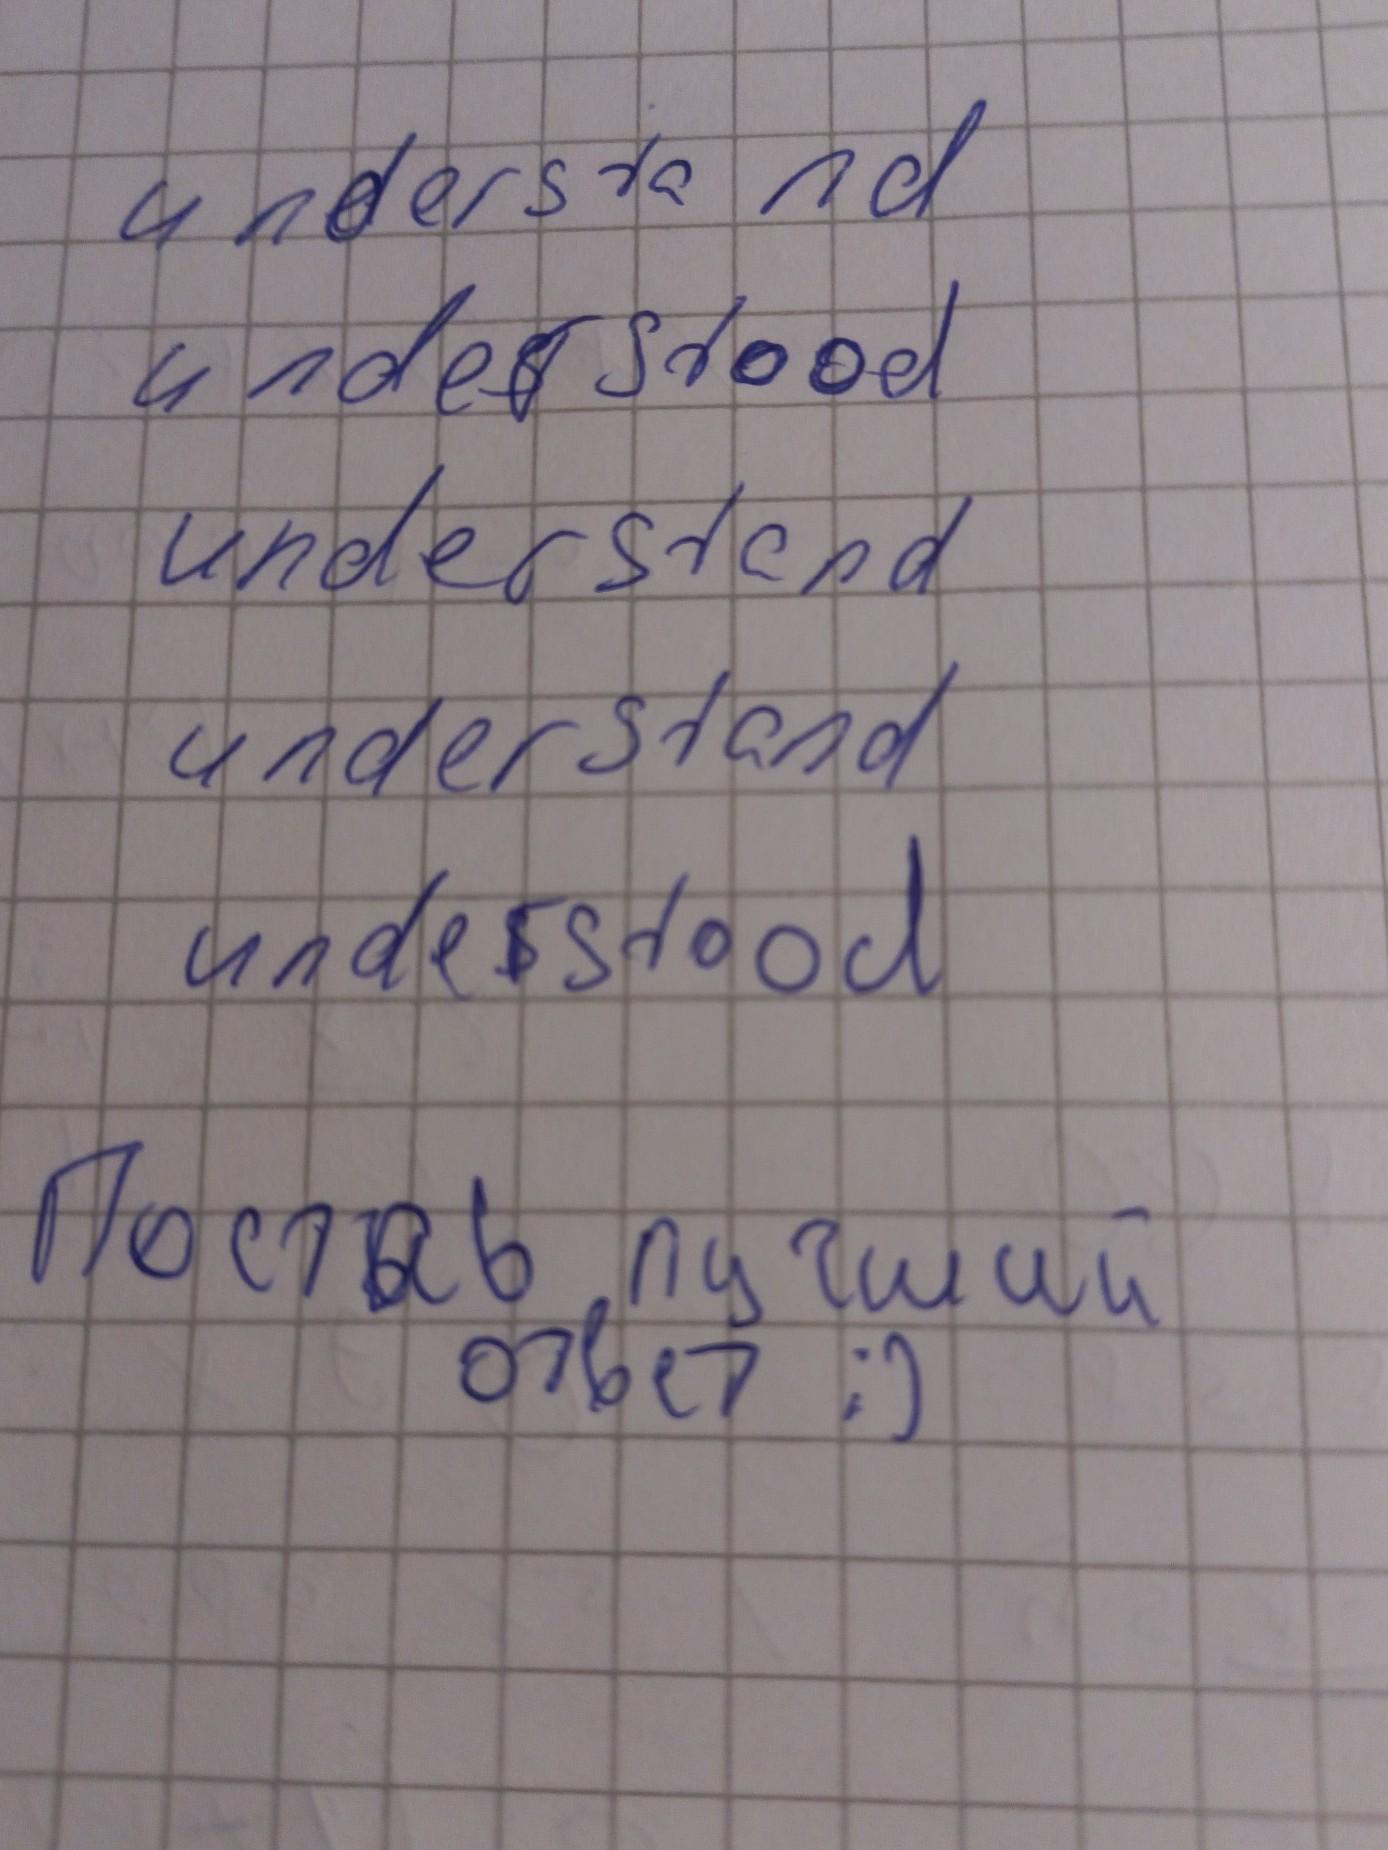 understand
understood
understand
understand
understood
Поставь лучший
ответ :)